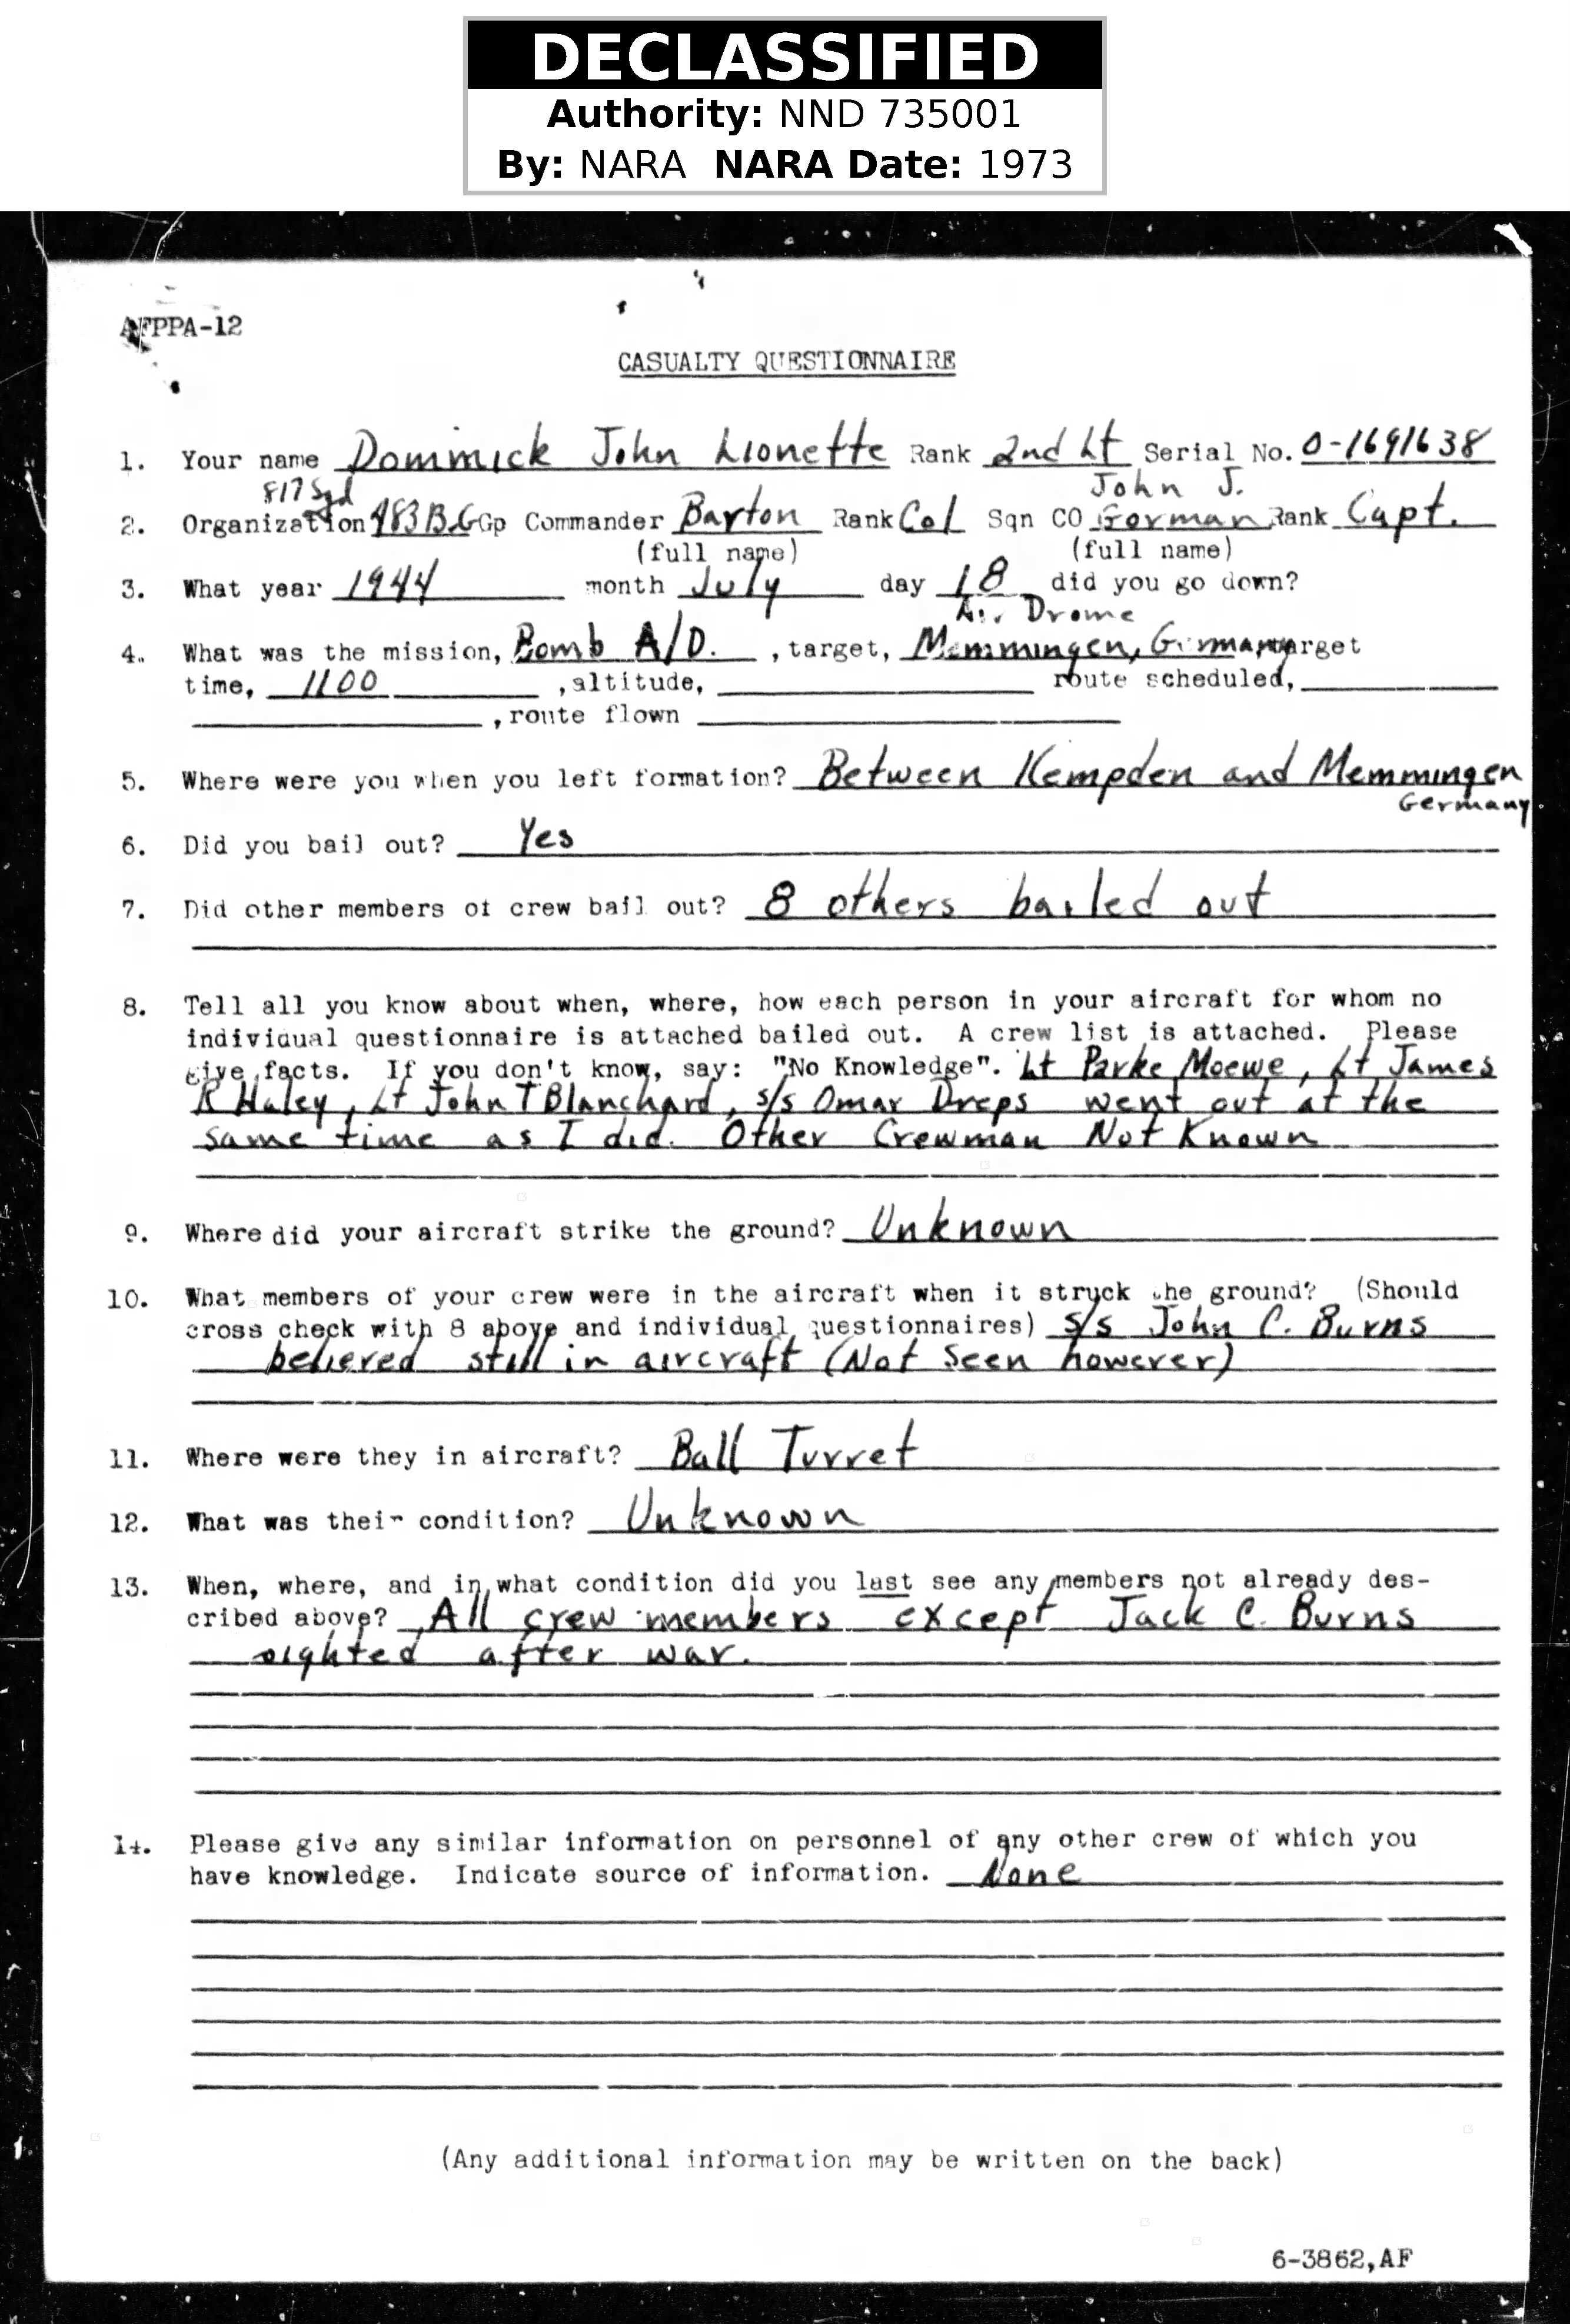 DECLASSIFIED
Authority: NND 735001
By: NARA NARA Date: 1973
AFPPA-12
CASUALTY QUESTIONNAIRE
1. Your name Dommick John Lionette Rank 2nd Lt Serial No. O-1691638
817 Sqd John J.
2. Organization 483 B.G Gp Commander Barton Rank Col Sqn CO Gorman Rank Capt.
(full name) (full name)
3. What year 1944 month July day 18 did you go down?
Air Drome
4. What was the mission, Bomb A/D. , target, Memmingen, Germany target
time, 1100 , altitude, route scheduled,
, route flown
5. Where were you when you left formation? Between Kempden and Memmingen
Germany
6. Did you bail out? Yes
7. Did other members of crew bail out? 8 others bailed out
8. Tell all you know about when, where, how each person in your aircraft for whom no
individual questionnaire is attached bailed out. A crew list is attached. Please
give facts. If you don't know, say: "No Knowledge". Lt Parke Moewe, Lt James
R Haley, Lt John T Blanchard, s/s Omar Dreps went out at the
same time as I did. Other Crewman Not Known
9. Where did your aircraft strike the ground? Unknown
10. What members of your crew were in the aircraft when it struck the ground? (Should
cross check with 8 above and individual questionnaires) S/s John C. Burns
believed still in aircraft (Not Seen however)
11. Where were they in aircraft? Ball Turret
12. What was their condition? Unknown
13. When, where, and in what condition did you last see any members not already des-
cribed above? All crew members except Jack C. Burns
sighted after war.
14. Please give any similar information on personnel of any other crew of which you
have knowledge. Indicate source of information. None
(Any additional information may be written on the back)
6-3862,AF